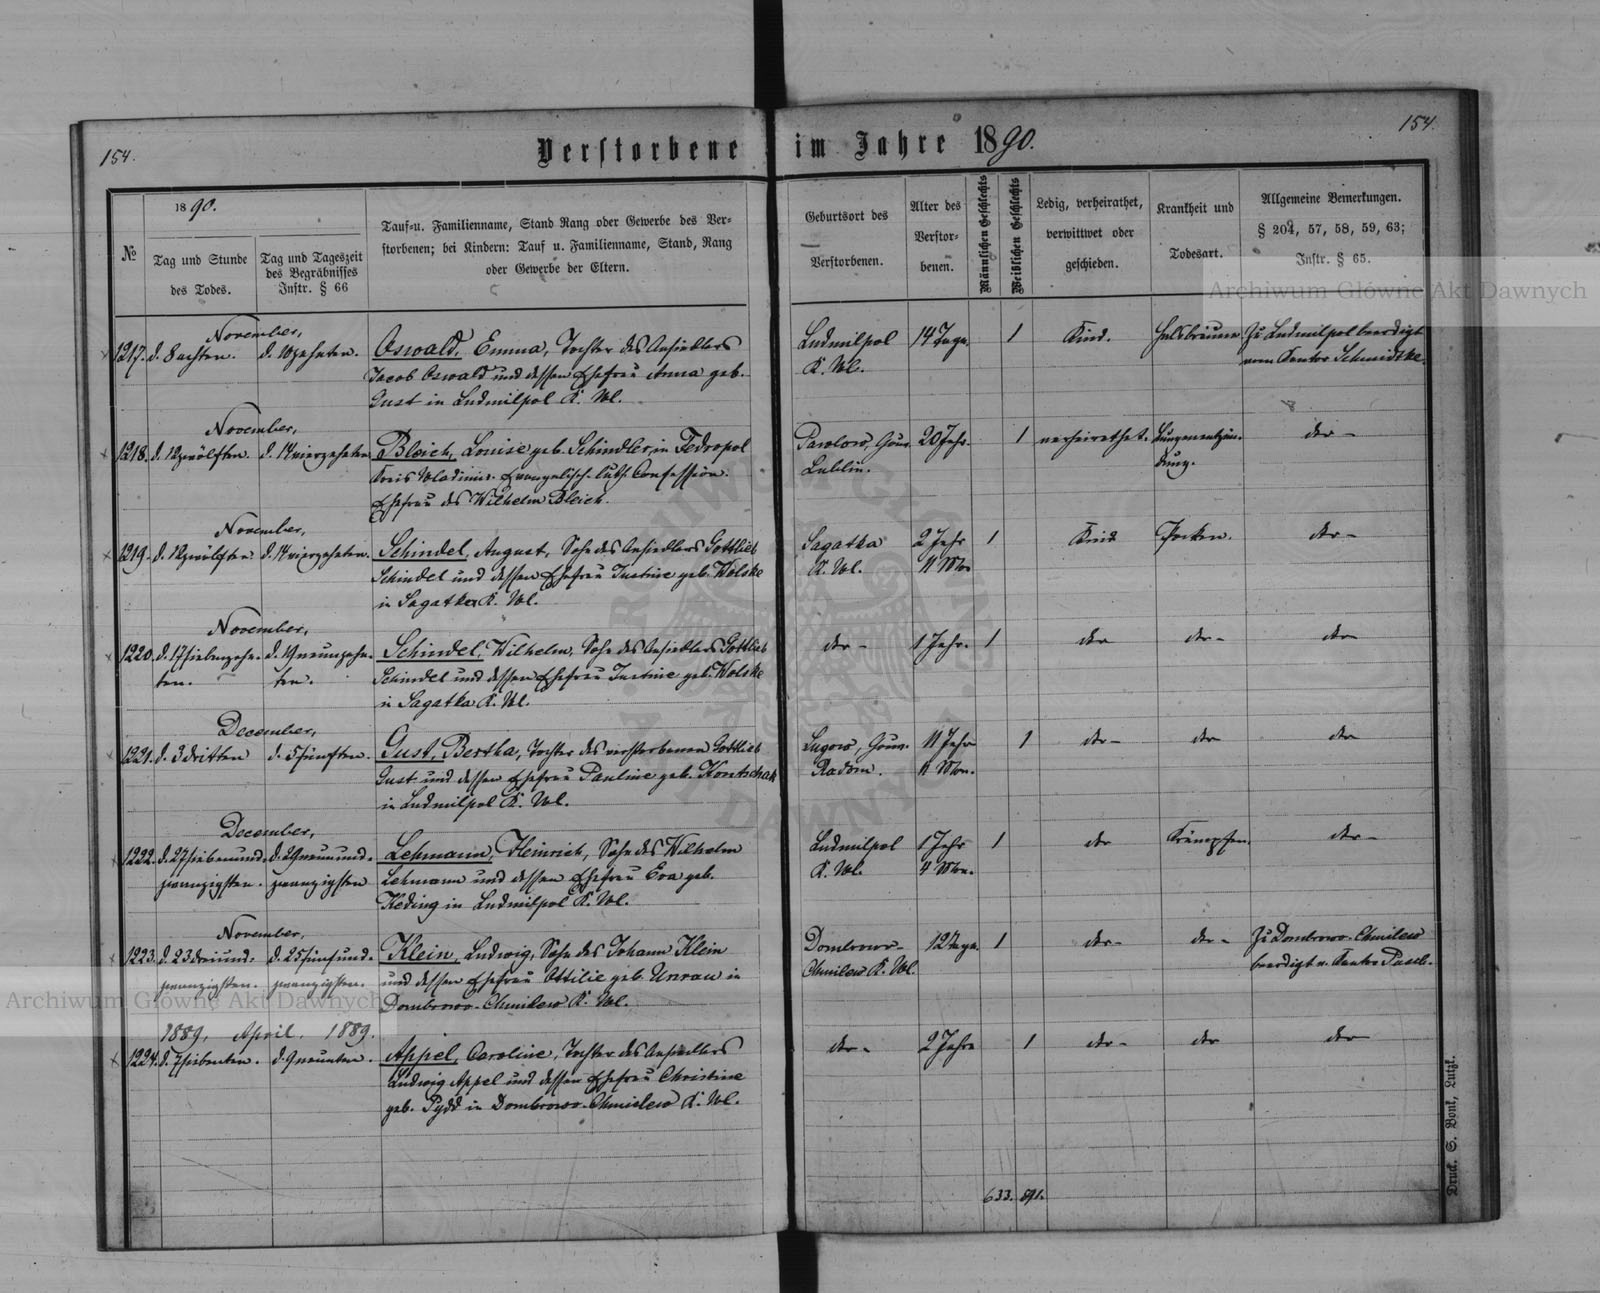 154.
Verstorbene im Jahre 1890.
154.
1890.
№
Tag und Stunde
des Todes.
Tag und Tageszeit
des Begräbnisses
Instr. § 66
Tauf- u. Familienname, Stand Rang oder Gewerbe des Ver-
storbenen; bei Kindern: Tauf u. Familienname, Stand, Rang
oder Gewerbe der Eltern.
Geburtsort des
Verstorbenen.
Alter des
Verstor-
benen.
Männlichen Geschlechts
Weiblichen Geschlechts
Ledig, verheirathet,
verwittwet oder
geschieden.
Krankheit und
Todesart.
Allgemeine Bemerkungen.
§ 204, 57, 58, 59, 63;
Instr. § 65.
Archiwum Główne Akt Dawnych
November,
1217. d. 8 achten. d. 10 zehnten. Oswald, Emma, Tochter des Ansiedlers
Jacob Oswald und dessen Ehefrau Anna geb.
Gust in Ludmilpol K. Wl.
Ludmilpol 14 Tage. 1 Kind. Halsbräune. Zu Ludmilpol beerdigt
K. Wl. vom Kantor Schmidtke.
November,
1218. d. 12 zwölften. d. 14 vierzehnten. Bleich, Louise geb. Schindler, in Fedropol
Kreis Wladimir. Evangelisch-luth. Confession.
Ehefrau des Wilhelm Bleich.
Gouv. 20 Jahr. 1 verheirathet. Lungenentzün-
Lublin. dung.
der -
November,
1219. d. 12 zwölften. d. 14 vierzehnten. Schindel, August, Sohn des Ansiedlers Gottlieb
Schindel und dessen Ehefrau Justine geb. Wolske
in Sagatka K. Wl.
Sagatka 2 Jahr 1 Kind Pocken. der -
K. Wl. 11 Mon.
November,
1220. d. 17 siebenzehn- d. 19 neunzehn- Schindel, Wilhelm, Sohn des Ansiedlers Gottlieb
ten. ten. Schindel und dessen Ehefrau Justine geb. Wolske
in Sagatka K. Wl.
der - 1 Jahr. 1 der der - der
December,
1221. d. 3 dritten d. 5 fünften. Gust, Bertha, Tochter des verstorbenen Gottlieb
Gust und dessen Ehefrau Pauline geb. Kontschak
in Ludmilpol K. Wl.
Lugow, Gouv. 11 Jahr 1 der - der der
Radom. 11 Mon.
December,
1222. d. 27 siebenund- d. 29 neunund- Lehmann, Heinrich, Sohn des Wilhelm
zwanzigsten. zwanzigsten Lehmann und dessen Ehefrau Eva geb.
Keding in Ludmilpol K. Wl.
Ludmilpol 1 Jahr 1 der Krämpfen. der -
K. Wl. 4 Mon.
November,
1223. d. 23 dreiund- d. 25 fünfund- Klein, Ludwig, Sohn des Johann Klein
zwanzigsten. zwanzigsten. und dessen Ehefrau Ottilie geb. Unrau in
Dombrowo-Chmilew K. Wl.
Dombrowo- 12 Tage 1 der - der - Zu Dombrowo-Chmilew
Chmilew K. Wl. beerdigt v. Kantor
Archiwum Główne Akt Dawnych
1889, April. 1889.
1224. d. 7 siebenten. d. 9 neunten. Appel, Caroline, Tochter des Ansiedlers
Ludwig Appel und dessen Ehefrau Christine
geb. Pydd in Dombrowo-Chmielew K. Wl.
der - 2 Jahre 1 der - der der
633. 591.
Druck. S. Bonk, Lutzk.
ARCHIWUM GŁÓWNE AKT DAWNYCH